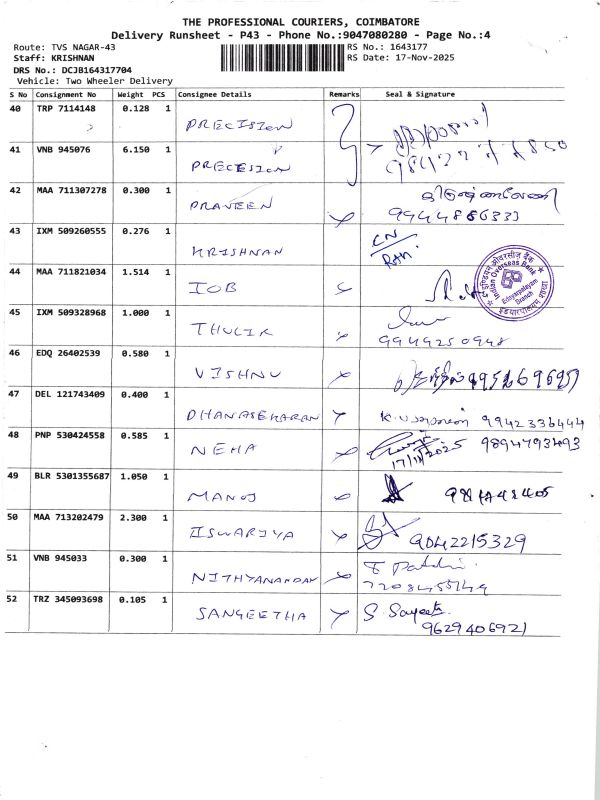 THE PROFESSIONAL COURIERS, COIMBATORE
Delivery Runsheet - P43 - Phone No.:9047080280 - Page No.:4
Route: TVS NAGAR-43 RS No.: 1643177
Staff: KRISHNAN RS Date: 17-Nov-2025
DRS No.: DCJB164317704
Vehicle: Two Wheeler Delivery
S No Consignment No Weight PCS Consignee Details Remarks Seal & Signature
40 TRP 7114148 0.128 1 PRECISION
41 VNB 945076 6.150 1 PRECESION
42 MAA 711307278 0.300 1 PRAVEEN
9944886333
43 IXM 509260555 0.276 1 KRISHNAN CN
44 MAA 711821034 1.514 1 IOB
इण्डियन ओवरसीज़ बैंक
Indian Overseas Bank
Edayarpalayam
Branch
45 IXM 509328968 1.000 1 THULIR
9944250948
46 EDQ 26402539 0.580 1 VISHNU
47 DEL 121743409 0.400 1 DHANASEKARAN 9942336444
48 PNP 530424558 0.585 1 NEHA 17/11/2025 9894793493
49 BLR 5301355687 1.050 1 MANOJ
50 MAA 713202479 2.300 1 ISWARIYA 9042215329
51 VNB 945033 0.300 1 NITHYANANDAN
52 TRZ 345093698 0.105 1 SANGEETHA S.
9629406921